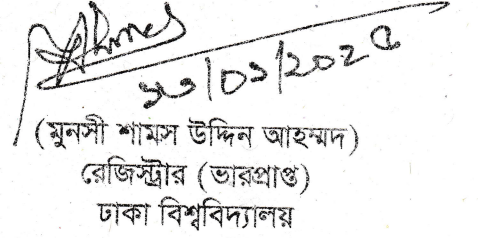 ১৩/০১/২০২৫
(মুনসী শামস উদ্দিন আহম্মদ)
রেজিস্ট্রার (ভারপ্রাপ্ত)
ঢাকা বিশ্ববিদ্যালয়